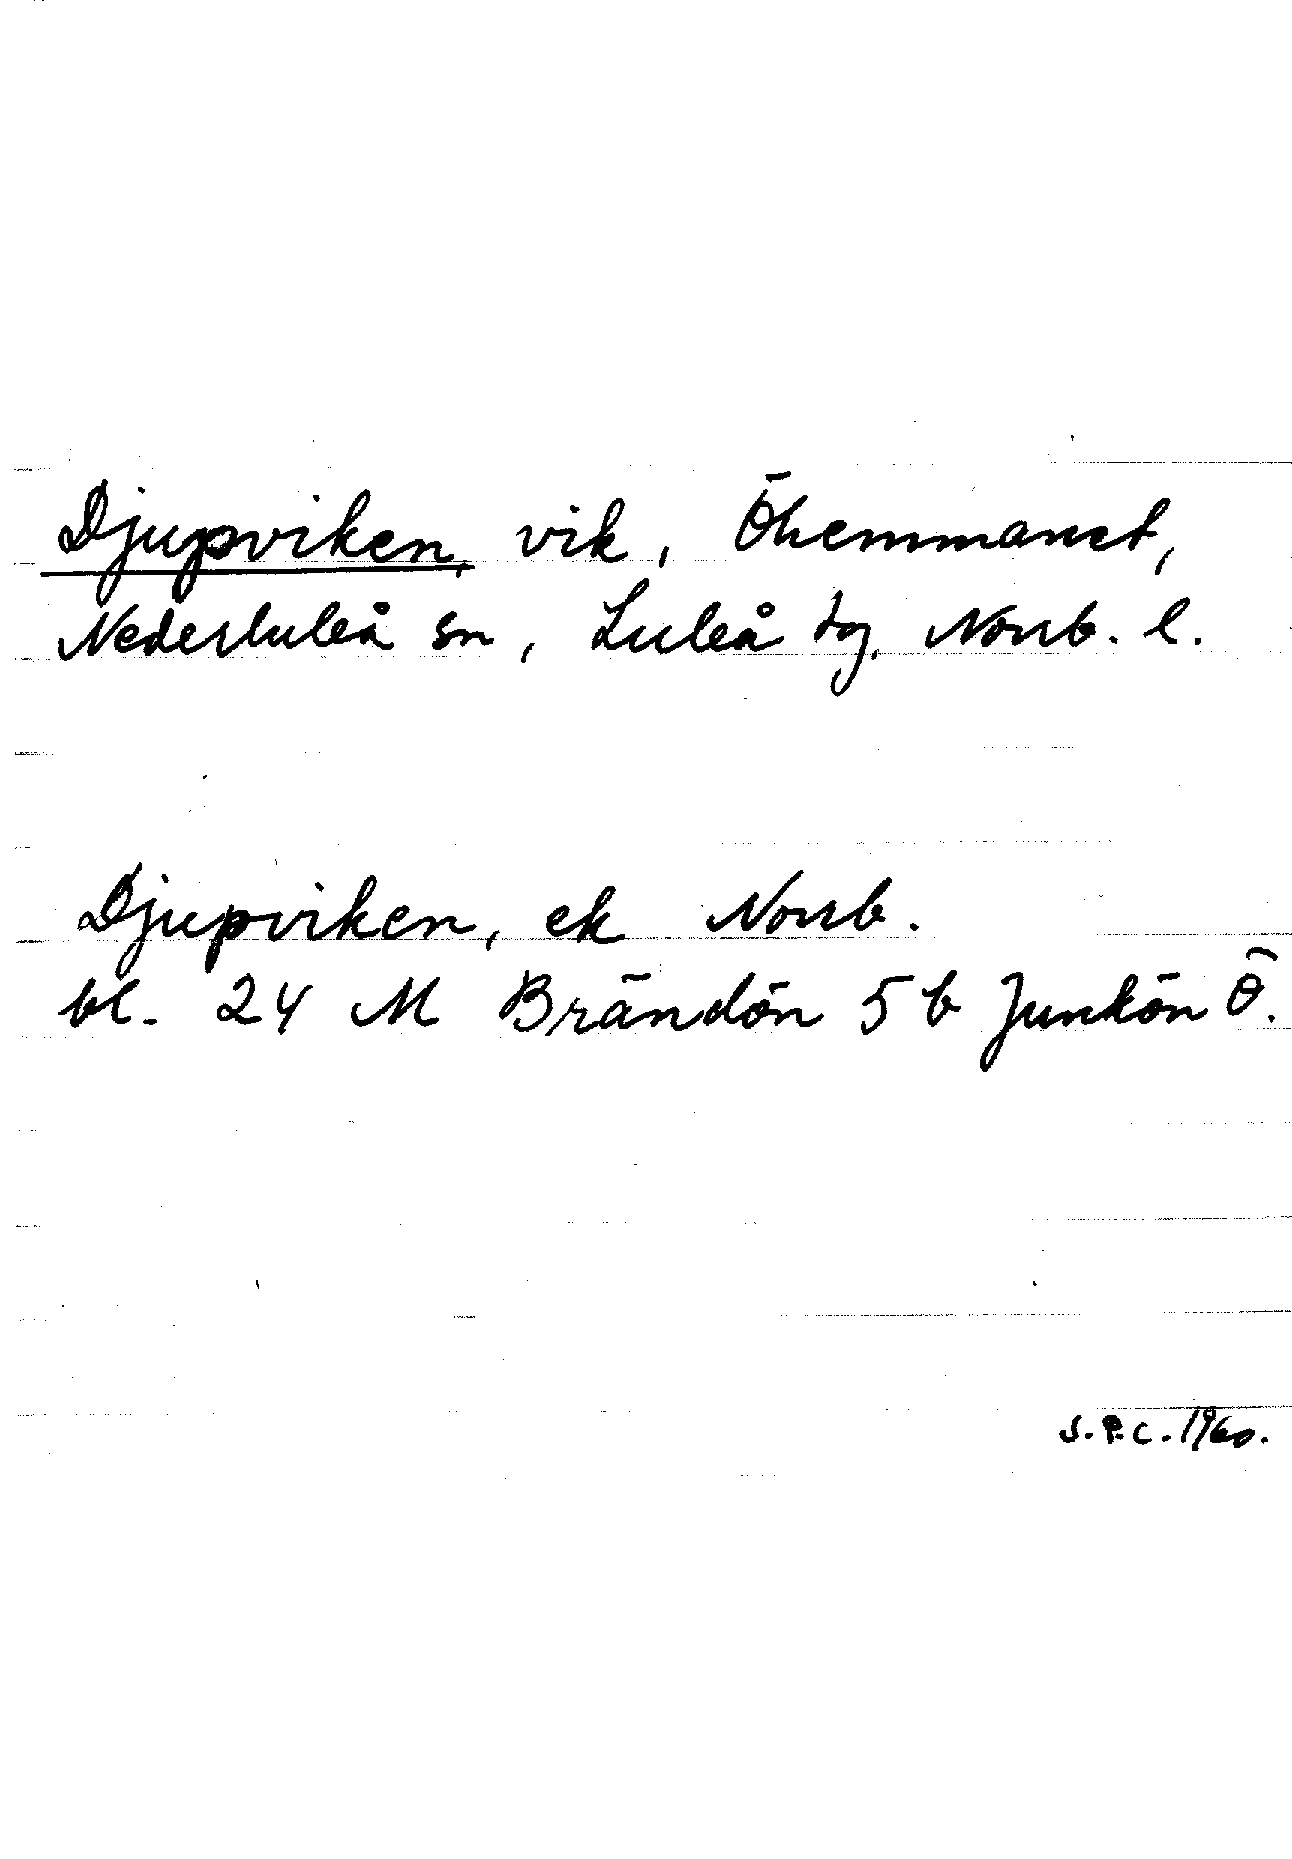 Djupviken, vik, Öhemmanet,
Nederluleå sn, Luleå tg, Norrb. l.
Djupviken, ek Norrb.
bl. 24 M Brändön 5 b Junkön Ö.
S.P.C. 1960.